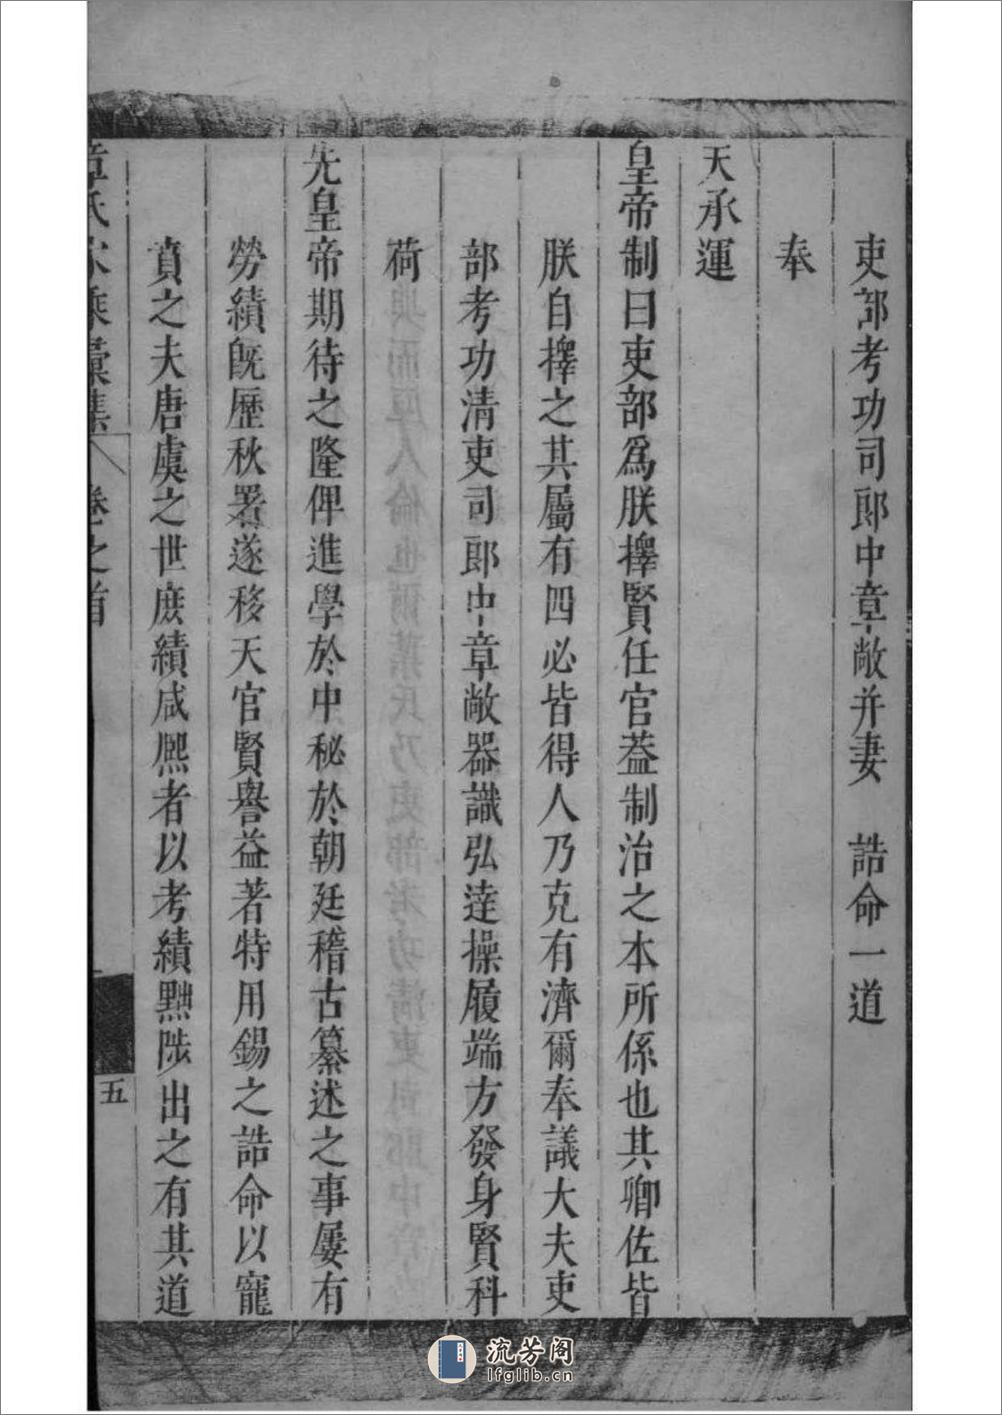 吏部考功司郎中章敞并妻　誥命一道
奉
天承運
皇帝制曰吏部爲朕擇賢任官葢制治之本所係也其卿佐皆
朕自擇之其屬有四必皆得人乃克有濟爾奉議大夫吏
部考功清吏司郎中章敞器識弘達操履端方發身賢科
荷
先皇帝期待之隆俾進學於中秘於朝廷稽古纂述之事屢有
勞績旣歷秋署遂移天官賢譽益著特用錫之誥命以寵
賁之夫唐虞之世庶績咸熈者以考績黜陟出之有其道
章氏家乘彙集 卷之首
五
流芳阁
lfglib.cn